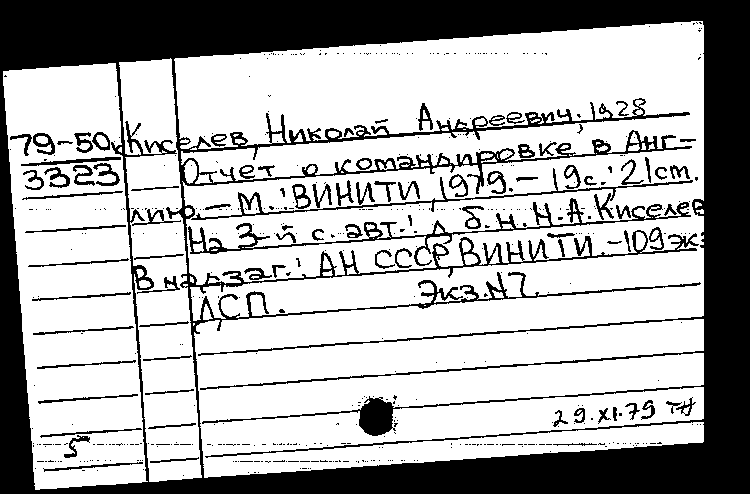 79-50к Киселев, Николай Андреевич, 1928
3323 Отчет о командировке в Анг=
лию. – М.: ВИНИТИ, 1979. – 19с.; 21ст.
На 3-й с. авт.: д. б. н. Н. А. Киселев
В надзаг.: АН СССР, ВИНИТИ. – 109 экз
ДСП. Экз. N 7.
29.XI.79
5